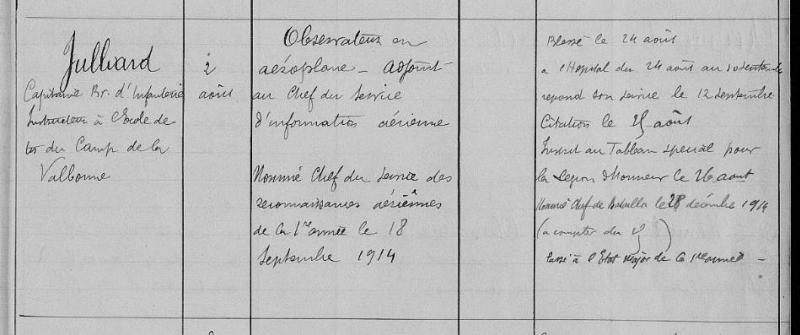 Julliard
Capitaine Br. d'Infanterie
Instructeur à l'Ecole de
tir du Camp de la
Valbonne
2
août
Observateur en
aéroplane - Adjoint
au Chef du Service
d'information aérienne
Nommé Chef du Service des
reconnaissances aériennes
de la 1re armée le 18
Septembre 1914
Blessé le 24 août
à l'Hopital du 24 août au 10 septembre
reprend son service le 12 septembre
Citation le 25 août
Inscrit au Tableau spécial pour
la Legion d'honneur le 26 aout
Nommé Chef de Bataillon le 28 décembre 1914
(a compter du 25)
Passé à l'Etat Major de la 1re armée -